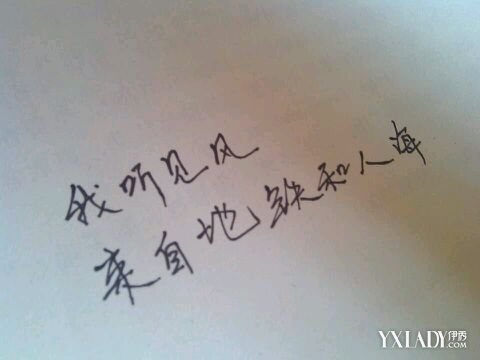 我听见风
来自地铁和人海
YXLADY.COM
伊秀